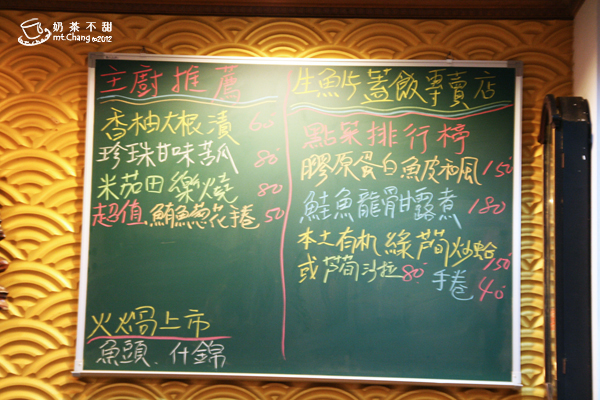 奶茶不甜
mt.Chang©2012
主廚推薦
香柚大根漬 60
珍珠甘味苦瓜 80
米茄田樂燒 80
超值 鮪魚蔥花捲 50
火煱上市
魚頭、什錦
生魚片蓋飯專賣店
點菜排行榜
膠原蛋白魚皮和風 150
鮭魚龍骨甘露煮 180
本土有机綠蘆筍炒蛤 150
或芦筍沙拉80 手捲 40